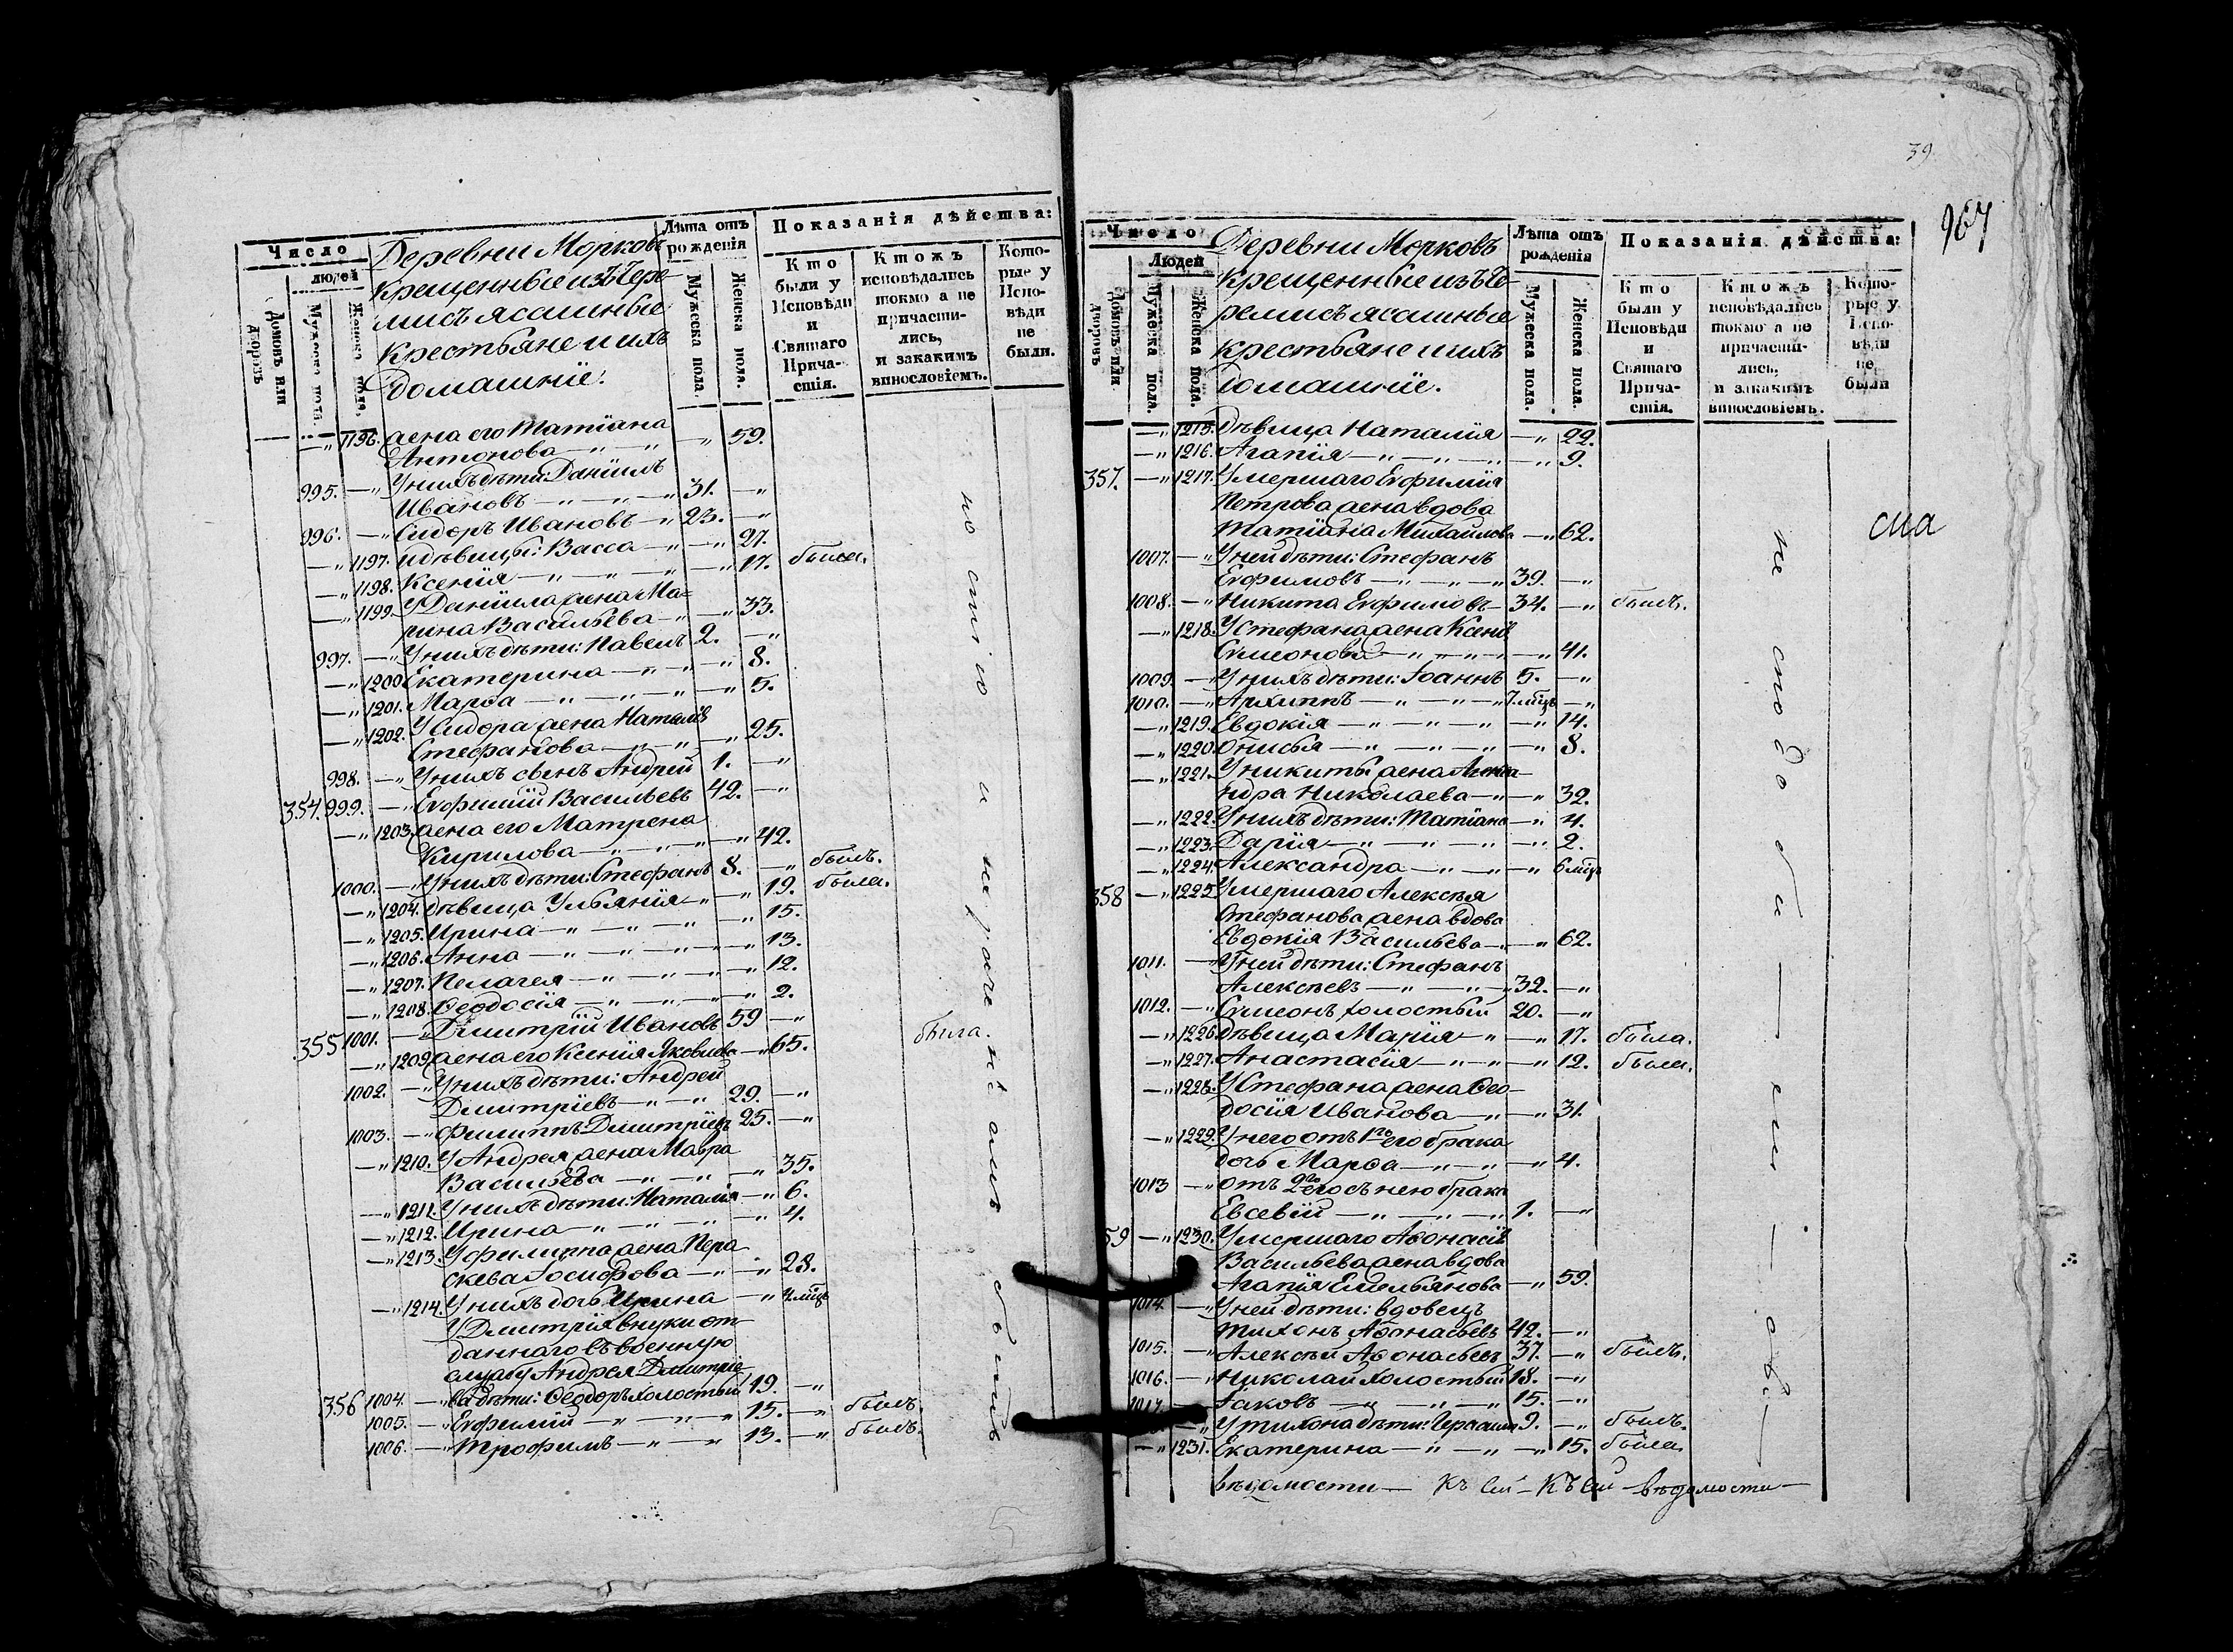 39
967
сиа
Число
людей
Домовъ или дворовъ
Мужеска пола.
Женска пола.
Деревни Морковъ
крещенные изъ Чере-
мисъ ясашные
крестьяне и ихъ
домашніе.
Лѣта отъ рожденія
Мужеска пола
Женска пола.
Показанія дѣйства:
Кто были у Исповѣди и Святаго Прича-стія.
Ктожъ исповѣдались токмо а не причасти-лись, и закакимъ винословіемъ.
Кото-рые у Испо-вѣди не были.
—„ 1196. жена его Татіана
Антонова —„ —„ —„ 59.
995. —„ У нихъ дѣти: Даніилъ
Ивановъ —„ —„ —„ 31. —„
996. —„ Сидоръ Ивановъ —„ 23. —„
—„ 1197. и дѣвицы: Васса —„ —„ 27.
—„ 1198. Ксенія —„ —„ —„ —„ 17. была.
—„ 1199. У Даніила жена Ма-
рина Васильева —„ —„ 33.
997. —„ У нихъ дѣти: Павелъ 2. —„
—„ 1200. Екатерина —„ —„ —„ 8.
—„ 1201. Марѳа —„ —„ —„ —„ 5.
—„ 1202. У Сидора жена Наталія
Стефанова —„ —„ —„ 25.
998. —„ У нихъ сынъ Андрей 1. —„
354. 999. —„ Евфимій Васильевъ 42. —„
—„ 1203. жена его Матрена
Кирилова —„ —„ —„ —„ 42.
1000. —„ У нихъ дѣти: Стефанъ 8. —„ былъ.
—„ 1204. дѣвица Ульянія —„ —„ 19. была.
—„ 1205. Ирина —„ —„ —„ —„ 15.
—„ 1206. Анна —„ —„ —„ —„ 13.
—„ 1207. Пелагея —„ —„ —„ —„ 12.
—„ 1208. Ѳеодосія —„ —„ —„ —„ 2.
355 1001. —„ Димитрій Ивановъ 59 —„
—„ 1209. жена его Ксенія Яковлева —„ 65. была.
1002. —„ У нихъ дѣти: Андрей
Димитріевъ —„ —„ 29. —„
1003. —„ Филиппъ Димитріевъ 25. —„
—„ 1210. У Андрея жена Мавра
Васильева —„ —„ —„ 35.
—„ 1211. У нихъ дѣти: Наталія —„ 6.
—„ 1212. Ирина —„ —„ —„ —„ 4.
—„ 1213. У Филиппа жена Пара
скева Іосифова —„ —„ 28.
—„ 1214. У нихъ дочь Ирина —„ 4 мѣц
У Димитрія внуки от-
даннаго въ военную
службу Андрея Димитріе-
356 1004. —„ ва дѣти: Ѳеодоръ холостый 19. —„
1005. —„ Евфимій —„ —„ —„ 15. —„ былъ.
1006. —„ Трофимъ —„ —„ 13. —„ былъ.
Число
Людей
Домовъ или дворовъ
Мужеска пола.
Женска пола.
Деревни Морковъ
крещенные изъ Че-
ремисъ ясашные
крестьяне и ихъ
домашніе.
Лѣта отъ рожденія
Мужеска пола.
Женска пола.
Показанія дѣйства:
Кто были у Исповѣди и Святаго Прича-стія.
Ктожъ исповѣдались токмо а не причасти-лись, и закакимъ винословіемъ.
Кото-рые у Испо-вѣди не были
—„ 1215. дѣвица Наталія —„ 22.
—„ 1216. Агапія —„ —„ —„ —„ 9.
357. —„ 1217. Умершаго Евфимія
Петрова жена вдова
Татіана Михайлова —„ 62.
1007. —„ У ней дѣти: Стефанъ
Евфимовъ —„ —„ —„ 39. —„
1008. —„ Никита Евфимовъ — 34. —„ былъ.
—„ 1218. У Стефана жена Ксенія
Симеонова —„ —„ —„ 41.
1009. —„ У нихъ дѣти: Іоаннъ 5. —„
1010. —„ Архиппъ —„ —„ —„ 7 мѣцъ —„
—„ 1219. Евдокія —„ —„ —„ —„ 14.
—„ 1220. Онисья —„ —„ —„ —„ 8.
—„ 1221. У Никиты жена Алекса-
ндра Николаева —„ —„ 32.
—„ 1222. У нихъ дѣти: Татіана —„ 4.
—„ 1223. Дарія —„ —„ —„ —„ 2.
—„ 1224. Александра —„ —„ —„ 6 мѣц
358 —„ 1225. Умершаго Алексѣя
Стефанова жена вдова
Евдокія Васильева —„ —„ 62.
1011. —„ У ней дѣти: Стефанъ
Алексѣевъ —„ —„ —„ 32. —„
1012. —„ Симеонъ холостый 20. —„
—„ 1226. дѣвица Марія —„ —„ 17. была.
—„ 1227. Анастасія —„ —„ —„ 12. была.
—„ 1228. У Стефана жена Ѳео-
досія Иванова —„ —„ 31.
—„ 1229. У него отъ 1го его брака
дочь Марѳа —„ —„ —„ 4.
1013 —„ отъ 2го его съ нею брака
Евсевій —„ —„ —„ 1. —„
59 —„ 1230. Умершаго Аѳонасія
Васильева жена вдова
Агапія Емельянова —„ 59.
1014. —„ У ней дѣти: вдовецъ
Тихонъ Аѳонасьевъ 42. —„
1015. —„ Алексѣй Аѳонасьевъ 37. —„ былъ.
1016. —„ Николай холостый 18. —„
1017. — Іаковъ —„ —„ —„ 15. —„
—„ У Тихона дѣти: Герасимъ 9. —„ былъ.
—„ 1231. Екатерина —„ —„ —„ 15. была.
вѣдомости — Къ сей — Къ сей — вѣдомости —